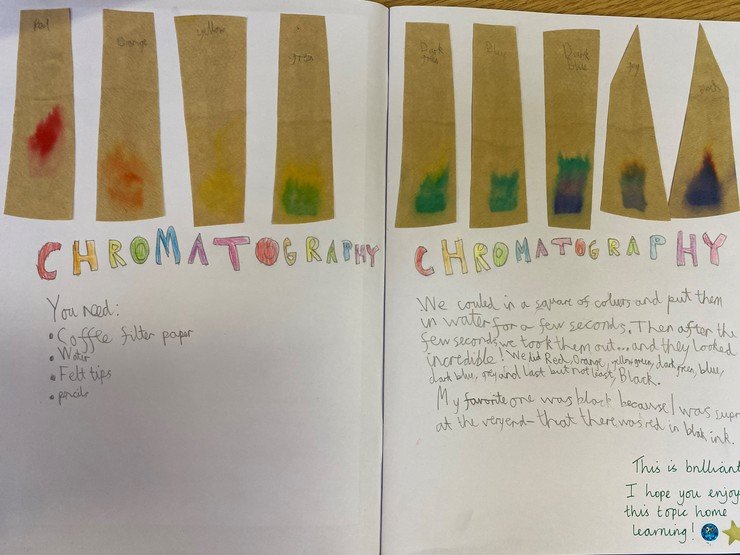 Red
Orange
yellow
green
CHROMATOGRAPHY
You need:
• Coffee filter paper
• Water
• Felt tips
• pencils
Dark
green
Blue
Dark
blue
Black
CHROMATOGRAPHY
We couled in a square of colours and put them
in water for a few seconds. Then after the
few seconds we took them out... and they looked
incredible! We did Red, Orange, yellow green, dark green, blue,
dark blue, grey and last but not least, Black.
My favorite one was black because I was supr
at the very end - that there was red in black ink.
This is brilliant
I hope you enjoy
this topic home
learning!